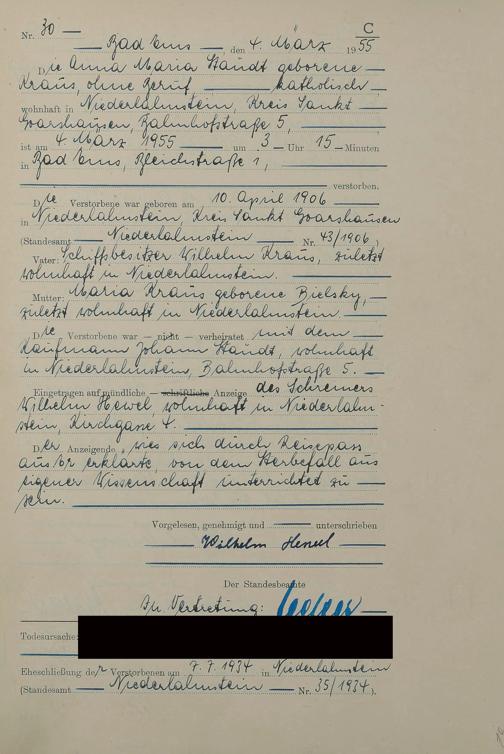 C
Nr. 30 —
Bad Ems —, den 4. März 1955
Die Anna Maria Staudt geborene
Kraus, ohne Beruf — katholisch —
wohnhaft in Niederlahnstein, Kreis Sankt
Goarshausen, Bahnhofstraße 5,
ist am 4. März 1955 um 3 — Uhr 15 — Minuten
in Bad Ems, Bleichstraße 1,
verstorben.
Die Verstorbene war geboren am 10. April 1906
in Niederlahnstein, Kreis Sankt Goarshausen
(Standesamt — Niederlahnstein — Nr. 43/1906,
Vater: Schiffsbesitzer Wilhelm Kraus, zuletzt
wohnhaft in Niederlahnstein. —
Mutter: Maria Kraus geborene Bielsky, —
zuletzt wohnhaft in Niederlahnstein. —
Die Verstorbene war — nicht — verheiratet mit dem
Kaufmann Johann Staudt, wohnhaft
in Niederlahnstein, Bahnhofstraße 5. —
Eingetragen auf mündliche — schriftliche Anzeige des Schreiners
Wilhelm Hewel, wohnhaft in Niederlahn-
stein, Kirchgasse 4. —
Der Anzeigende wies sich durch Reisepass
aus. Er erklärte, von dem Sterbefall aus
eigener Wissenschaft unterrichtet zu —
sein. —
Vorgelesen, genehmigt und — unterschrieben
Wilhelm Hewel
Der Standesbeamte
In Vertretung:
Todesursache:
Eheschließung der Verstorbenen am 7.7.1934 in Niederlahnstein
(Standesamt — Niederlahnstein — Nr. 35/1934).